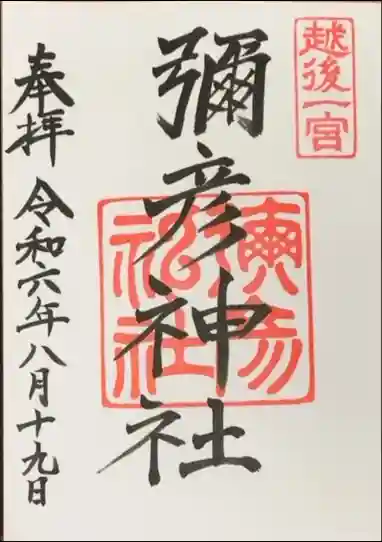 越後一宮
彌彦神社
彌彦
神社
奉拝
令和六年八月十九日